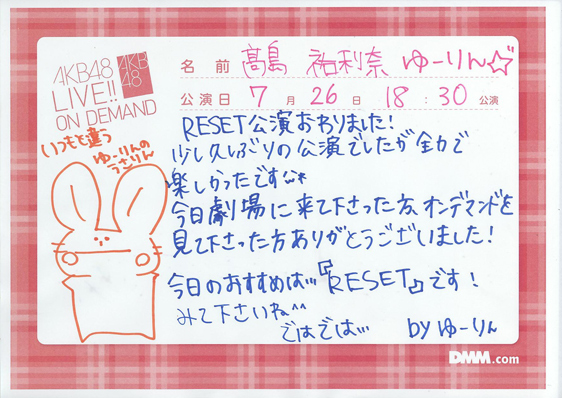 AKB48
LIVE!!
ON DEMAND
AKB
48
名前 高島 祐利奈 ゆーりん☆
公演日 7月26日 18:30公演
いつもと違う
ゆーりんの
うさりん
RESET公演おわりました!
少し久しぶりの公演でしたが全力で
楽しかったです
今日劇場に来て下さった方、オンデマンドを
見て下さった方ありがとうございました!
今日のおすすめは…『RESET』です!
みて下さいね^^
ではでは…
by ゆーりん
DMM.com